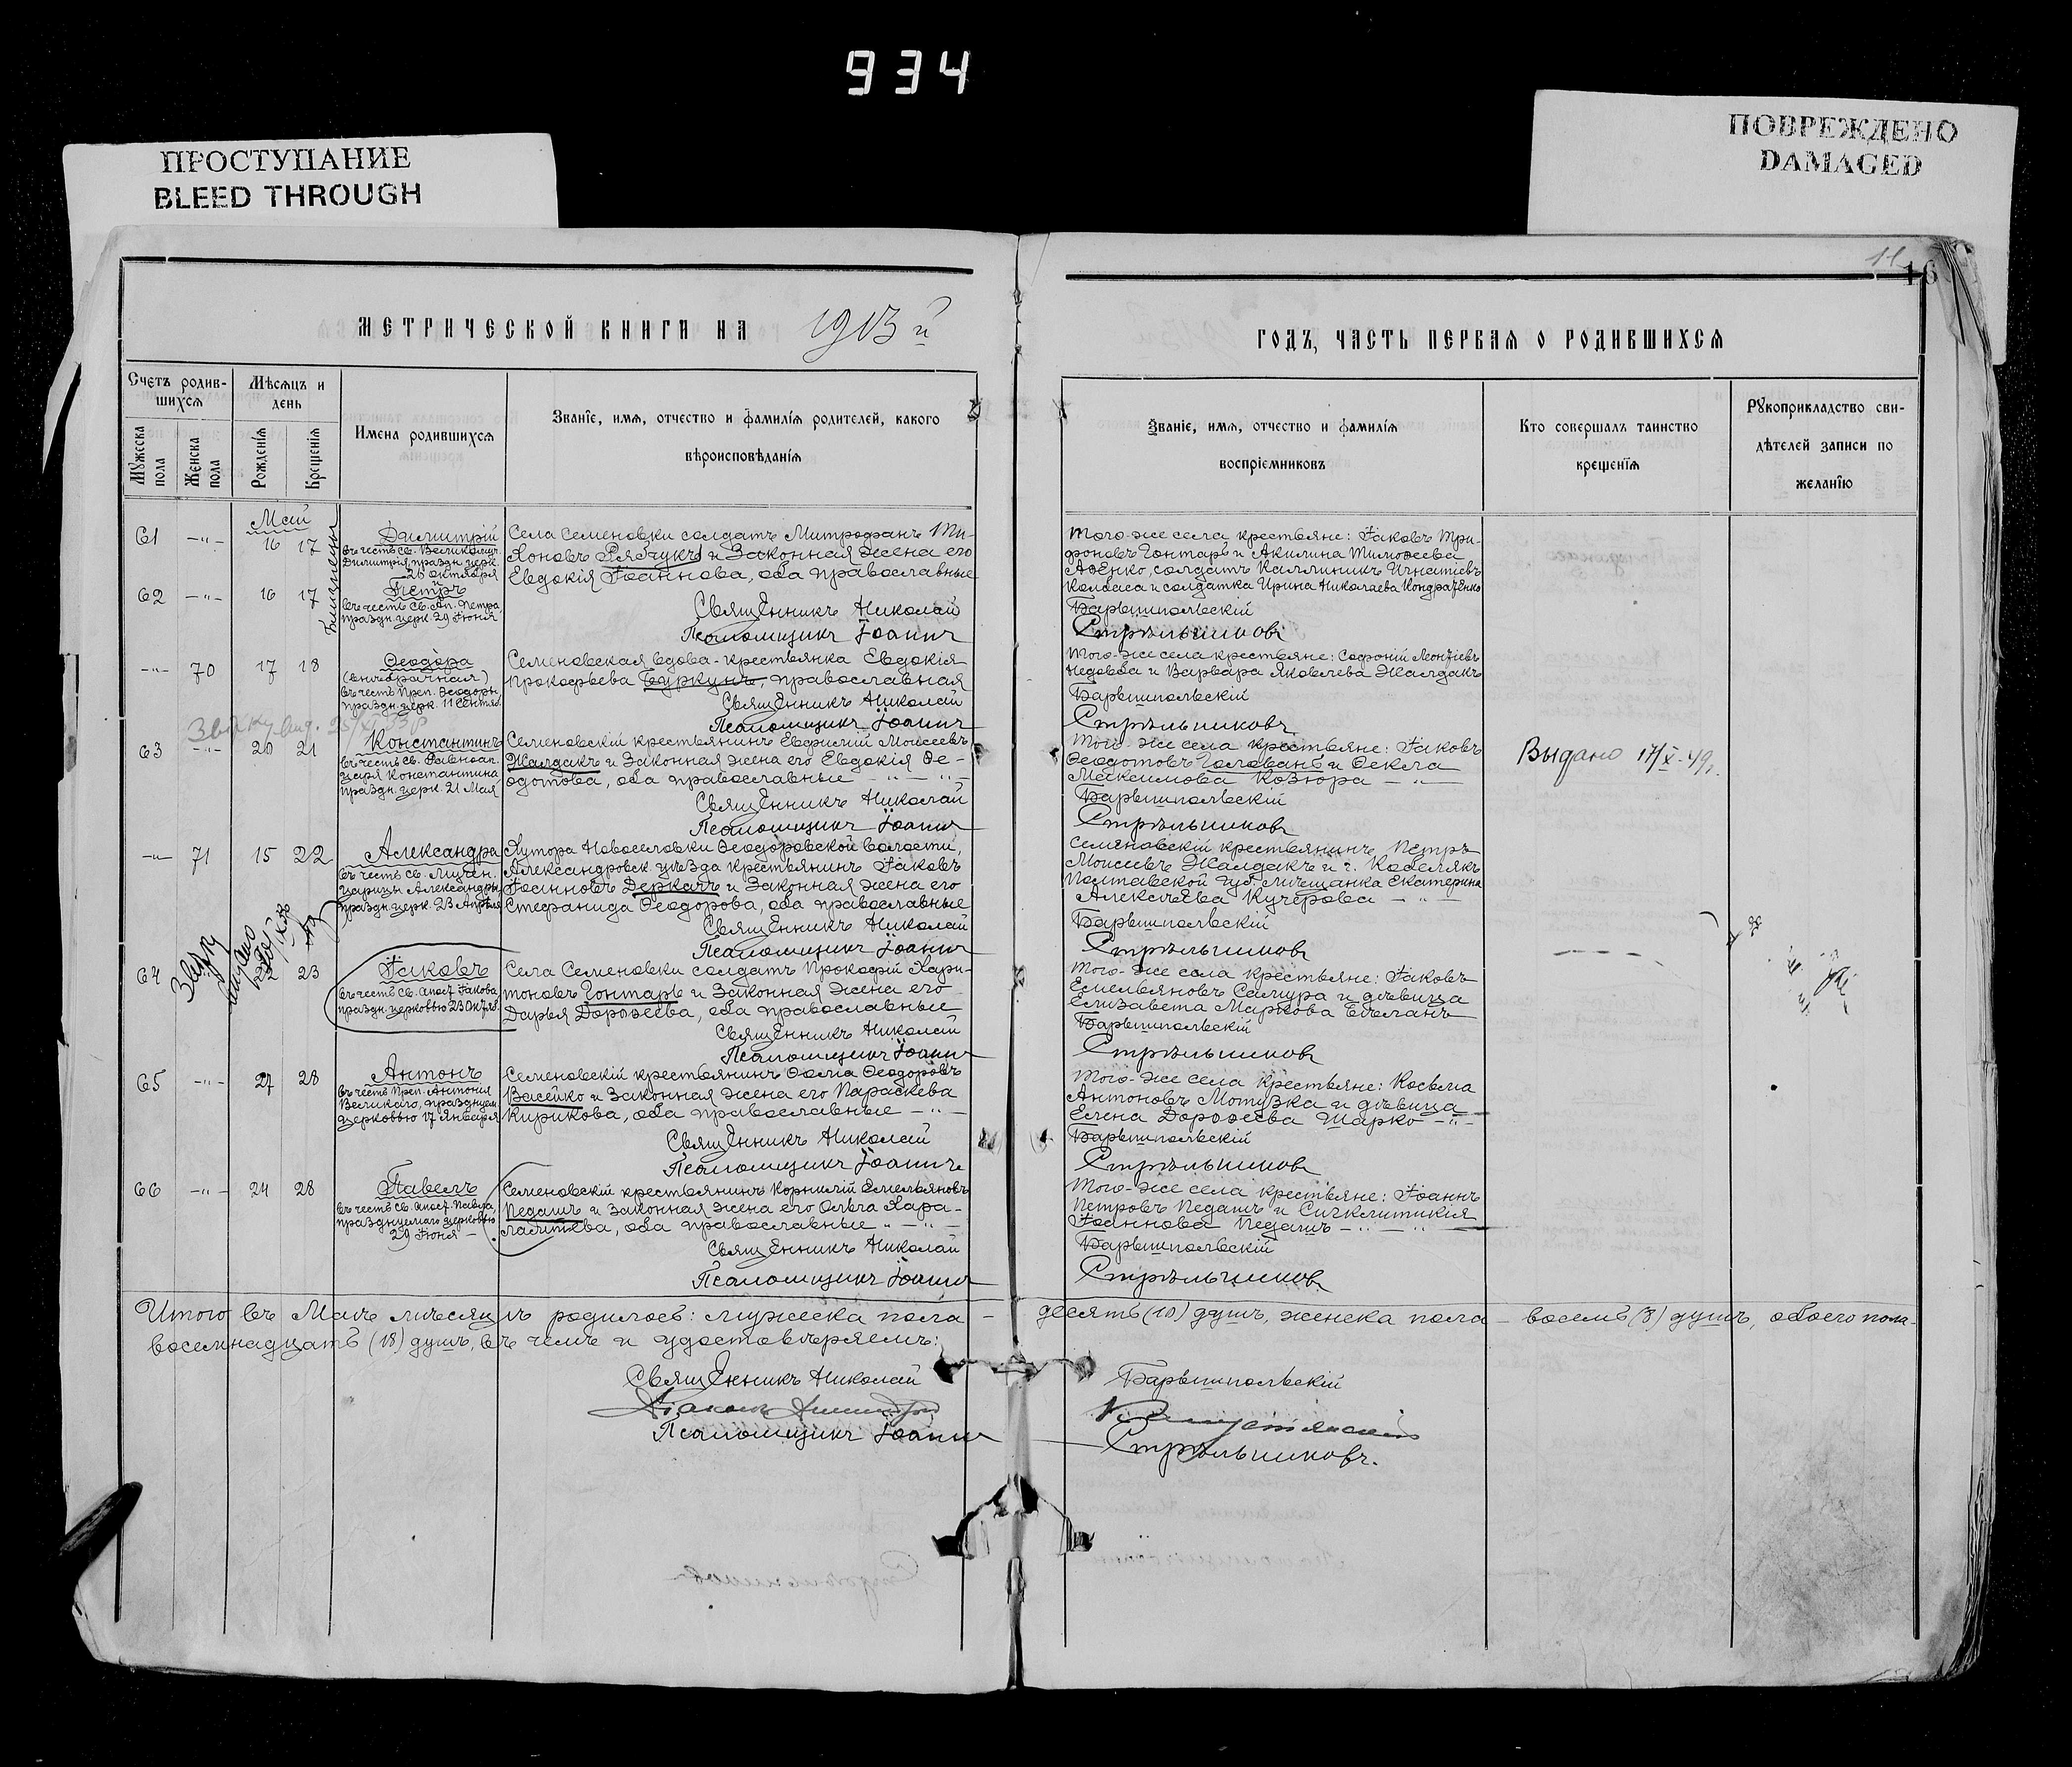 934
ПРОСТУПАНИЕ
BLEED THROUGH
ПОВРЕЖДЕНО
DAMAGED
16
МЕТРИЧЕСКОЙ КНИГИ НА 1913 й
ГОДЪ, ЧАСТЬ ПЕРВАЯ О РОДИВШИХСЯ
Счетъ родив-
шихся
Мужеска пола
Женска пола
Мѣсяцъ и
день
Рожденія
Крещенія
Имена родившихся
Званіе, имя, отчество и фамилія родителей, какого
вѣроисповѣданія
Званіе, имя, отчество и фамилія
воспріемниковъ
Кто совершалъ таинство
крещенія
Рукоприкладство сви-
дѣтелей записи по
желанію
Май
61 -"- 16 17
Близнецы
Димитрій
въ честь Св. Великомуч.
Димитрія, праздн. церк.
26 октября
Села Семеновки солдатъ Митрофанъ Ти-
хоновъ Рябчукъ и законная жена его
Евдокія Іоаннова, оба православные
Того-же села крестьяне: Іаковъ Три-
фоновъ Гонтарь и Акилина Тимоѳеева
солдатъ Каллиникъ Игнатіевъ
Колбаса и солдатка Ирина Николаева Кондратенко
62 -"- 16 17
Петръ
въ честь Св. Ап. Петра,
праздн. церк. 29 Іюня
Священникъ Николай
Барышпольскій
Псаломщикъ Іоаннъ
Стрѣльниковъ
-"- 70 17 18
Ѳеодора
(внебрачная)
въ честь Преп. Ѳеодоры,
праздн. церк. 11 Сентяб.
Семеновская вдова-крестьянка Евдокія
Прокофьева Буркунъ, православная
Того-же села крестьяне: Софоній Леонтіевъ
и Варвара Яковлева Жалдакъ
Священникъ Николай
Барышпольскій
Псаломщикъ Іоаннъ
Стрѣльниковъ
63 -"- 20 21
Константинъ
въ честь Св. Равноап.
Царя Константина
праздн. церк. 21 Мая
Семеновскій крестьянинъ Евфимій Моисеевъ
Жалдакъ и законная жена его Евдокія Ѳе-
одотова, оба православные -"-
Того-же села крестьяне: Іаковъ
Ѳеодотовъ Голованъ и Ѳекла
Максимова Козюра -"-
Выдано 17/X-49г.
Священникъ Николай
Барышпольскій
Псаломщикъ Іоаннъ
Стрѣльниковъ
-"- 71 15 22
Александра
въ честь Св. Мучен.
Царицы Александры,
праздн. церк. 23 Апрѣля
Хутора Новоселовки Ѳеодоровской волости,
Александровск. уѣзда крестьянинъ Іаковъ
Іоанновъ Деркачъ и законная жена его
Стефанида Ѳеодорова, оба православные
Семеновскій крестьянинъ Петръ
Моисеевъ Жалдакъ и г. Кобелякъ
Полтавской губ. мѣщанка Екатерина
Алексѣева Кучерова -"-
Священникъ Николай
Барышпольскій
Псаломщикъ Іоаннъ
Стрѣльниковъ
64 22 23
Іаковъ
въ честь Св. Апост. Іакова,
праздн. церковью 23 Октяб.
Села Семеновки солдатъ Прокофій Хари-
тоновъ Гонтарь и законная жена его
Дарья Дороѳеева, оба православные
Того-же села крестьяне: Іаковъ
Емельяновъ Самура и дѣвица
Елизавета Маркова
Священникъ Николай
Барышпольскій
Псаломщикъ Іоаннъ
Стрѣльниковъ
65 -"- 27 28
Антонъ
въ честь Преп. Антонія
Великаго, празднуем.
церковью 17 Января
Семеновскій крестьянинъ Ѳома Ѳеодоровъ
Васейко и законная жена его Параскева
Кирикова, оба православные -"-
Того-же села крестьяне: Косьма
Антоновъ Мотузка и дѣвица
Елена Дороѳеева Шарко -"-
Священникъ Николай
Барышпольскій
Псаломщикъ Іоаннъ
Стрѣльниковъ
66 -"- 24 28
Павелъ
въ честь Св. Апост. Павла,
празднуемаго церковью
29 Іюня
Семеновскій крестьянинъ Корнилій Емельяновъ
Педашъ и законная жена его Ольга Хара-
лампіева, оба православные -"-
Того-же села крестьяне: Іоаннъ
Петровъ Педашъ и Сигклитикія
Іоаннова Педашъ -"-
Священникъ Николай
Барышпольскій
Псаломщикъ Іоаннъ
Стрѣльниковъ
Итого въ Маѣ мѣсяцѣ родилось: мужеска пола - десять (10) душъ, женска пола - восемь (8) душъ, обоего пола-
восемнадцать (18) душъ, въ чемъ и удостовѣряемъ:
Священникъ Николай
Барышпольскій
Діаконъ Димитрій
Псаломщикъ Іоаннъ
Стрѣльниковъ.